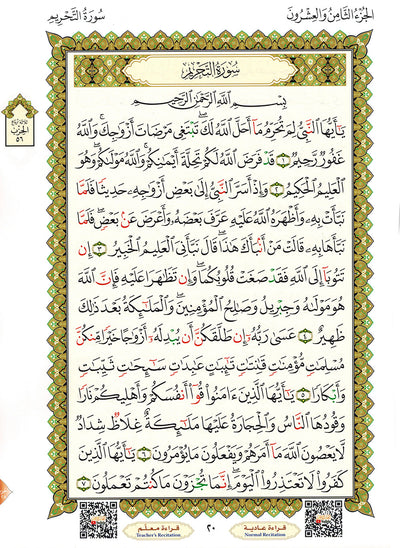 الجزء الثامن والعشرون
سورة التحريم
سُورَةُ التَّحْرِيمِ
بِسْمِ اللَّهِ الرَّحْمَٰنِ الرَّحِيمِ
يَا أَيُّهَا النَّبِيُّ لِمَ تُحَرِّمُ مَا أَحَلَّ اللَّهُ لَكَ ۖ تَبْتَغِي مَرْضَاتَ أَزْوَاجِكَ ۚ وَاللَّهُ
غَفُورٌ رَحِيمٌ ١ قَدْ فَرَضَ اللَّهُ لَكُمْ تَحِلَّةَ أَيْمَانِكُمْ ۚ وَاللَّهُ مَوْلَاكُمْ ۖ وَهُوَ
الْعَلِيمُ الْحَكِيمُ ٢ وَإِذْ أَسَرَّ النَّبِيُّ إِلَىٰ بَعْضِ أَزْوَاجِهِ حَدِيثًا فَلَمَّا
نَبَّأَتْ بِهِ وَأَظْهَرَهُ اللَّهُ عَلَيْهِ عَرَّفَ بَعْضَهُ وَأَعْرَضَ عَنْ بَعْضٍ ۖ فَلَمَّا
نَبَّأَهَا بِهِ قَالَتْ مَنْ أَنْبَأَكَ هَٰذَا ۖ قَالَ نَبَّأَنِيَ الْعَلِيمُ الْخَبِيرُ ٣ إِنْ
تَتُوبَا إِلَى اللَّهِ فَقَدْ صَغَتْ قُلُوبُكُمَا ۖ وَإِنْ تَظَاهَرَا عَلَيْهِ فَإِنَّ اللَّهَ
هُوَ مَوْلَاهُ وَجِبْرِيلُ وَصَالِحُ الْمُؤْمِنِينَ ۖ وَالْمَلَائِكَةُ بَعْدَ ذَٰلِكَ
ظَهِيرٌ ٤ عَسَىٰ رَبُّهُ إِنْ طَلَّقَكُنَّ أَنْ يُبْدِلَهُ أَزْوَاجًا خَيْرًا مِنْكُنَّ
مُسْلِمَاتٍ مُؤْمِنَاتٍ قَانِتَاتٍ تَائِبَاتٍ عَابِدَاتٍ سَائِحَاتٍ ثَيِّبَاتٍ
وَأَبْكَارًا ٥ يَا أَيُّهَا الَّذِينَ آمَنُوا قُوا أَنْفُسَكُمْ وَأَهْلِيكُمْ نَارًا
وَقُودُهَا النَّاسُ وَالْحِجَارَةُ عَلَيْهَا مَلَائِكَةٌ غِلَاظٌ شِدَادٌ
لَا يَعْصُونَ اللَّهَ مَا أَمَرَهُمْ وَيَفْعَلُونَ مَا يُؤْمَرُونَ ٦ يَا أَيُّهَا الَّذِينَ
كَفَرُوا لَا تَعْتَذِرُوا الْيَوْمَ ۖ إِنَّمَا تُجْزَوْنَ مَا كُنْتُمْ تَعْمَلُونَ ٧
الحزب
٥٦
قراءة معلم
Teacher's Recitation
٢٠
قراءة عادية
Normal Recitation